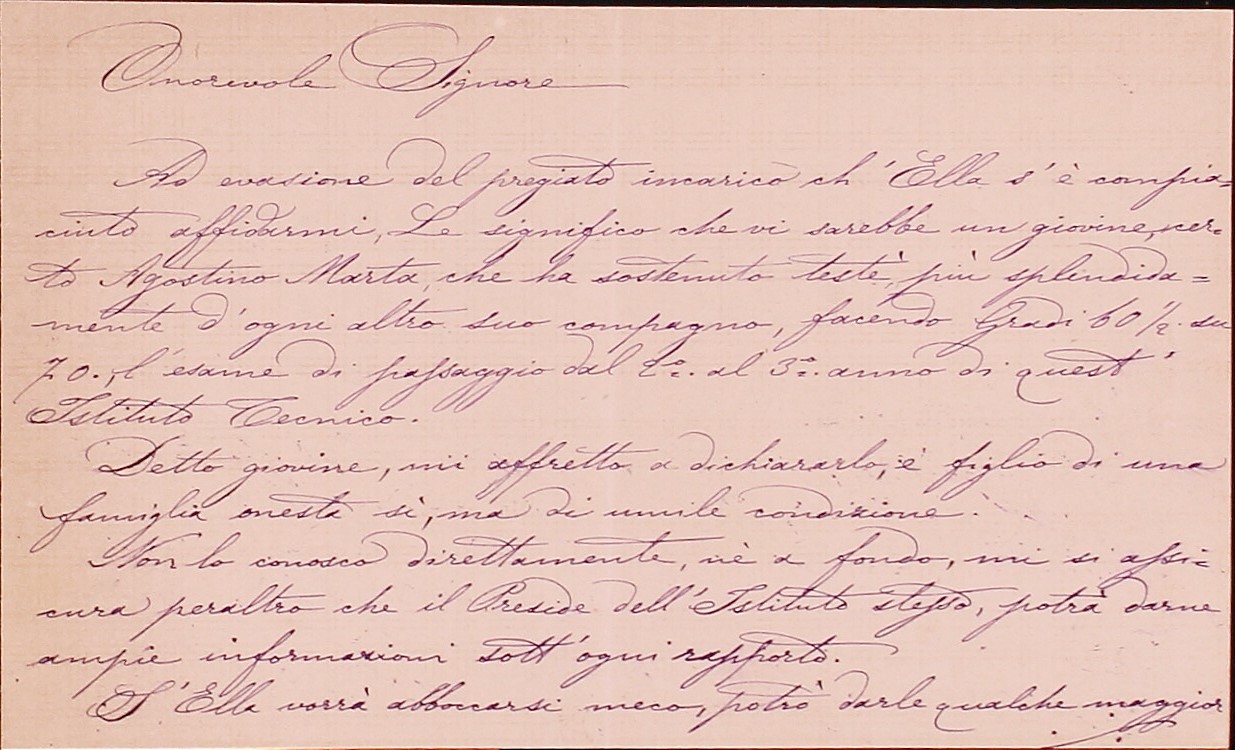 Onorevole Signore
Ad evasione del pregiato incarico ch'Ella s'è compia=
ciuto affidarmi, Le significo che vi sarebbe un giovine, cer=
to Agostino Marta, che ha sostenuto testè, più splendida=
mente d'ogni altro suo compagno, facendo Gradi 60 1/2. su
70., l'esame di passaggio dal 2º. al 3º. anno di quest'
Istituto Tecnico.
Detto giovine, mi affretto a dichiararlo, è figlio di una
famiglia onesta sì, ma di umile condizione.
Non lo conosco direttamente, nè a fondo, mi si assi=
cura peraltro che il Preside dell'Istituto stesso, potrà darne
ampie informazioni sott'ogni rapporto.
S'Ella vorrà abboccarsi meco, potrò darle qualche maggior